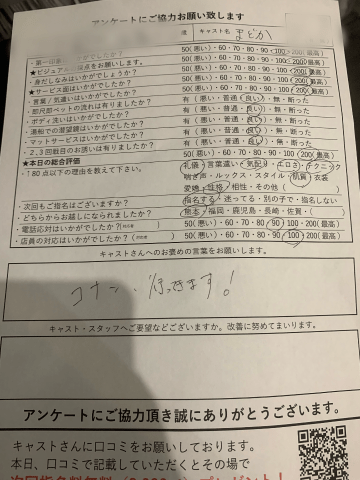 アンケートにご協力お願い致します
キャスト名 まどか
・第一印象はいかがでしたか? 50(悪い)・60・70・80・90・100・200(最高)
★ビジュアル 採点をお願いします。
・身だしなみはいかがでしょう? 50(悪い)・60・70・80・90・100・200(最高)
★サービス面はいかがでしたか? 50(悪い)・60・70・80・90・100・200(最高)
・言葉/気遣いはいかがでしたか? 50(悪い)・60・70・80・90・100・200(最高)
・即尺即ベットの流れは有りましたか? 有(悪い・普通・良い)・無・断った
・ボディ洗いはいかがでしたか? 有(悪い・普通・良い)・無・断った
・湯船での潜望鏡はいかがでしたか? 有(悪い・普通・良い)・無・断った
・マットサービスはいかがでしたか? 有(悪い・普通・良い)・無・断った
・2、3回戦目のお誘いは有りましたか? 有(悪い・普通・良い)・無・断った
★本日の総合評価 50(悪い)・60・70・80・90・100・200(最高)
・180点以下の理由を教えて下さい。 礼儀・言葉遣い・気配り・だらさ・テクニック
喘ぎ声・ルックス・スタイル・肌質・衣装
愛嬌・性格・相性・その他( )
・次回もご指名はございますか? 指名する・迷ってる・別の子で・指名しない
・どちらからお越しになられましたか? 熊本・福岡・鹿児島・長崎・佐賀・( )
・電話応対はいかがでしたか? 50(悪い)・60・70・80・90・100・200(最高)
・店員の対応はいかがでしたか? 50(悪い)・60・70・80・90・100・200(最高)
キャストさんへのお褒めの言葉をお願いします。
コナン、行ってきます!
キャスト・スタッフへご要望などございますか。改善に努めてまいります。
アンケートにご協力頂き誠にありがとうございます。
キャストさんに口コミをお願いしております。
本日、口コミで記載していただくとその場で